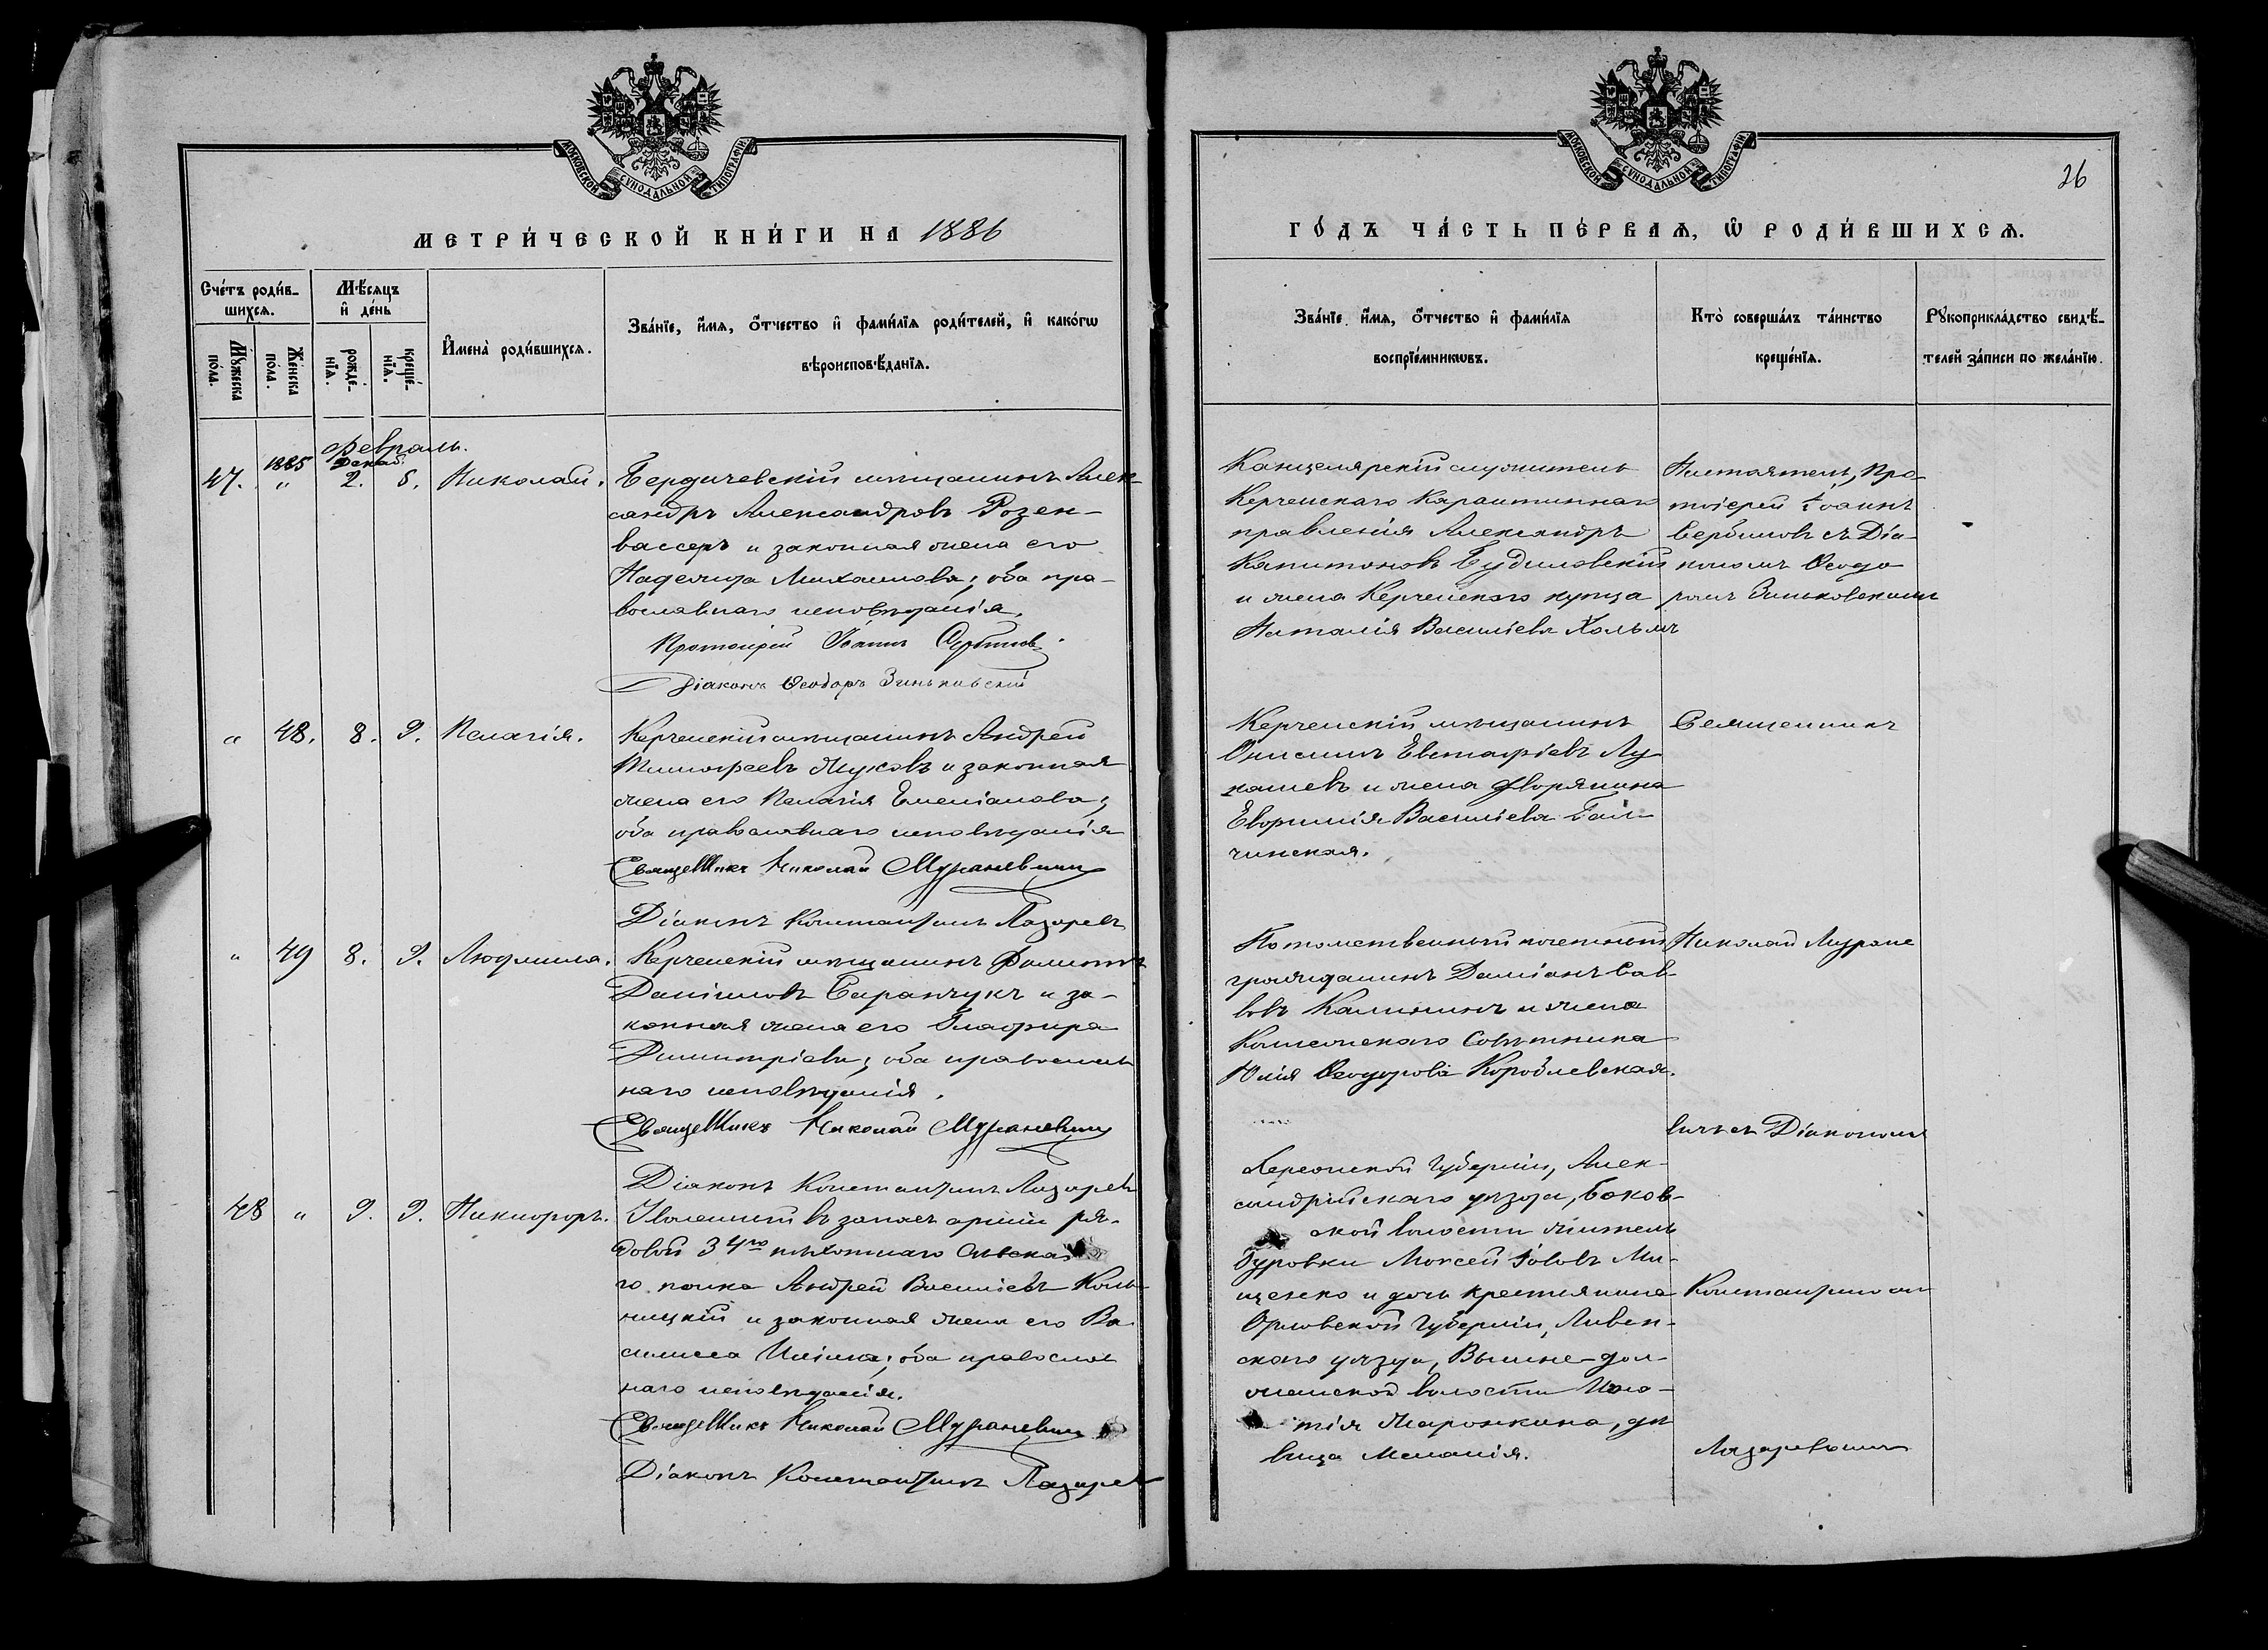 МОСКОВСКОЙ СѴНОДАЛЬНОЙ ТИПОГРАФІИ
МЕТРИ́ЧЕСКОЙ КНИ́ГИ НА 1886
Сче́тъ роди́в-
шихсѧ.
Мѣ́сѧцъ
и҆ де́нь
Мꙋ́жеска
по́ла.
Же́нска
по́ла.
рожде́-
нїѧ.
креще́-
нїѧ.
И҆мена̀ роди́вшихсѧ.
Зва́нїе, и҆́мѧ, ѻ҆́тчество и҆ фами́лїѧ роди́телей, и҆ како́гѡ
вѣроисповѣ́данїѧ.
Февраль.
1885 Декаб.
47. " 2. 8. Николай.
Бердичевскій мѣщанинъ Алек-
сандръ Александровъ Розен-
вассеръ и законная жена его
Надежда Михаилова; оба пра-
вославнаго исповѣданія.
Протоіерей Іоаннъ
Діаконъ Ѳеодоръ Зиньковскій
" 48. 8. 9. Пелагія.
Керченскій мѣщанинъ Андрей
Тимофеевъ Жуковъ и законная
жена его Пелагія Емеліанова;
оба православнаго исповѣданія
Священникъ Николай Мураневичъ
Діаконъ Константинъ Лазаревъ
" 49 8. 9. Людмила.
Керченскій мѣщанинъ Филиппъ
Даніиловъ Саранчукъ и за-
конная жена его Глафира
Димитріева; оба православ
наго исповѣданія.
Священникъ Николай Мураневичъ
Діаконъ Константинъ Лазаревъ
48 " 9. 9. Никифоръ.
Уволенный въ запасъ арміи ря-
довой 34го пѣхотнаго Сѣвска
го полка Андрей Василіевъ
ницкій и законная жена его Ва
силисса Иліина; оба православ
наго исповѣданія.
Священникъ Николай Мураневичъ
Діаконъ Константинъ Лазаревъ
МОСКОВСКОЙ СѴНОДАЛЬНОЙ ТИПОГРАФІИ
26
ГО́ДЪ ЧА́СТЬ ПЕ́РВАѦ, Ѡ҆ РОДИ́ВШИХСѦ.
Зва́нїе, и҆́мѧ, ѻ҆́тчество и҆ фами́лїѧ
воспрїе́мникѡвъ.
Кто̀ соверша́лъ та́инство
креще́нїѧ.
Рꙋкоприкла́дство свидѣ́-
телей за́писи по жела́нїю.
Канцелярскій служитель
Керченскаго Карантиннаго
правленія Александръ
Капитоновъ Будиловскій
и жена Керченскаго купца
Наталія Василіева
Настоятель, Про-
тоіерей Іоаннъ
съ Діа-
кономъ Ѳеодо
ромъ Зиньковскимъ
Керченскій мѣщанинъ
Онисимъ Евстафіевъ Лу
кашевъ и жена дворянина
Евфимія Василіева
чинская.
Священникъ
Потомственный почетный
гражданинъ Даміанъ Сав-
вовъ Калининъ и жена
Коллежскаго Совѣтника
Юлія Ѳеодорова Коробчевская.
Николай Муране
вичъ съ Діакономъ
Херсонской Губерніи, Алек-
сандрійскаго уѣзда, Боков-
ской волости житель
Гуровки Моисей Іововъ Ми-
щенко и дочь крестьянина
Орловской Губерніи, Ливен-
скаго уѣзда, Вышне-дол-
женской волости Игна-
тія Жаронкина, дѣ
вица Меланія.
Константиномъ
Лазаревымъ